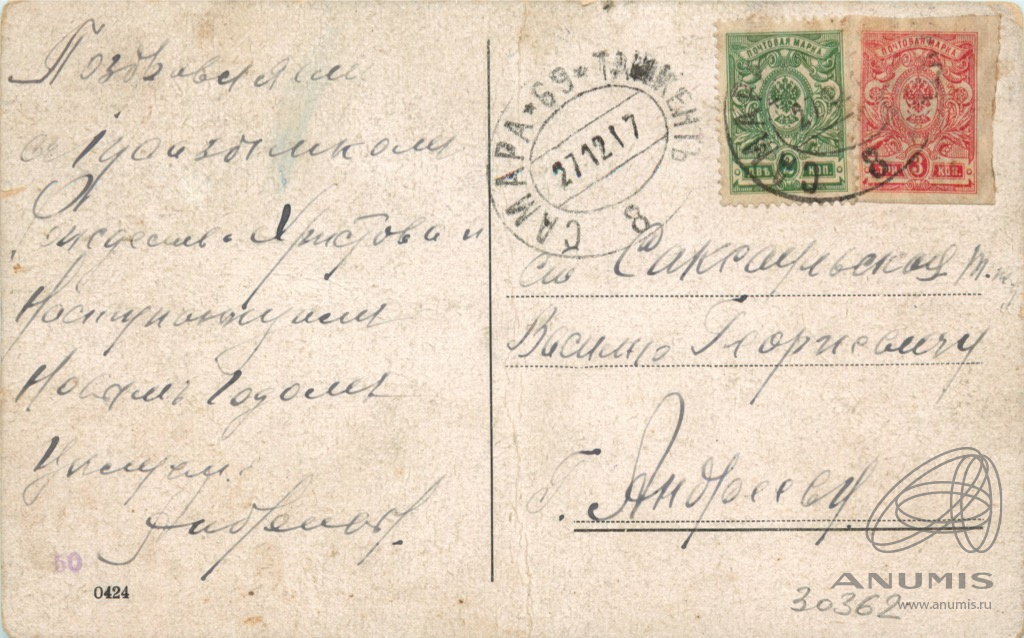 Поздравляем
съ Праздникомъ
Рождеств. Христова и
Наступающимъ
Новымъ Годомъ
Цѣлуемъ
0424
50
САМАРА * 69 * ТАШКЕНТЪ
27.12.17
8
ПОЧТОВАЯ МАРКА
2 ДВѢ КОП.
ПОЧТОВАЯ МАРКА
3 КОП.
ст Саксаульская
Василию Георгиевичу
Г. Андрееву
ANUMIS
www.anumis.ru
30362